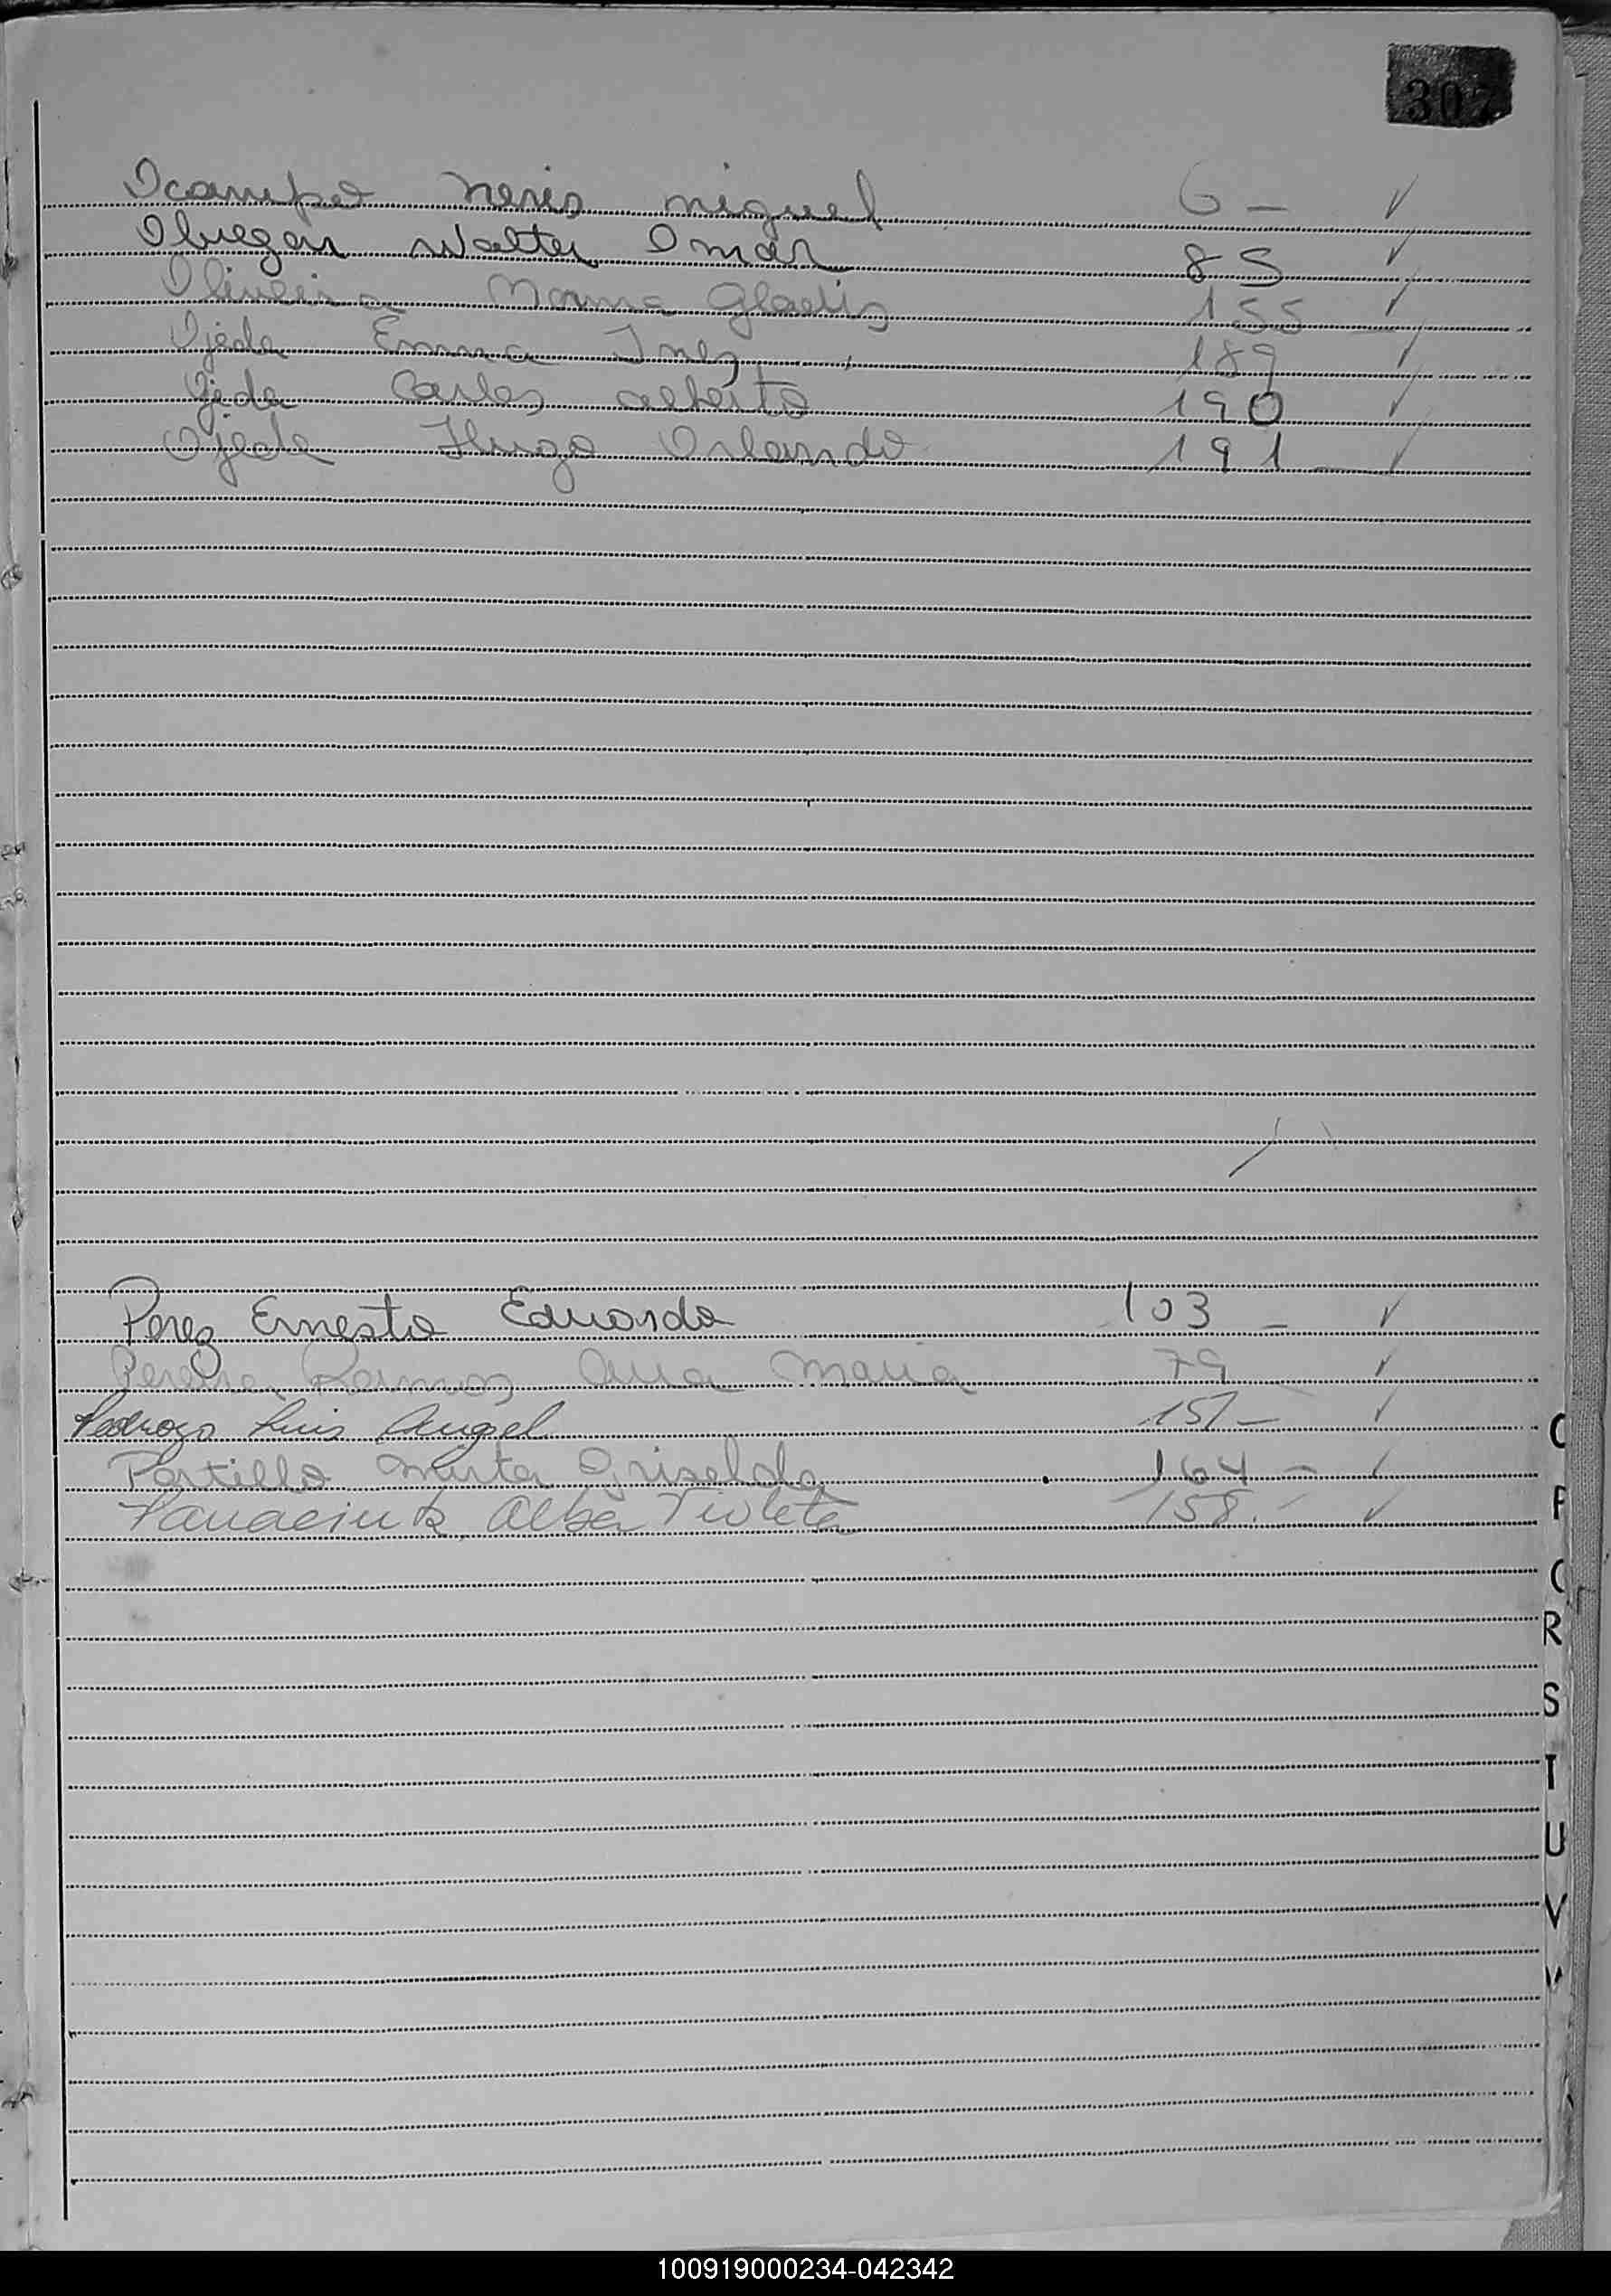 307
Ocampo Neris Miguel 6 - ✓
Obregon Walter Omar 85 ✓
Oliveira Norma Gladis 155 ✓
Ojeda Emma Ines 189 ✓
Ojeda Carlos Alberto 190 ✓
Ojeda Hugo Orlando 191 - ✓
Perez Ernesto Eduardo 103 - ✓
Pereira Ramos Ana Maria 79 - ✓
Pedrozo Luis Angel 151 - ✓
Portillo Mirta Griselda 164 - ✓
Panaciuk Alba Violeta 158. - ✓
P
R
S
T
U
V
100919000234-042342